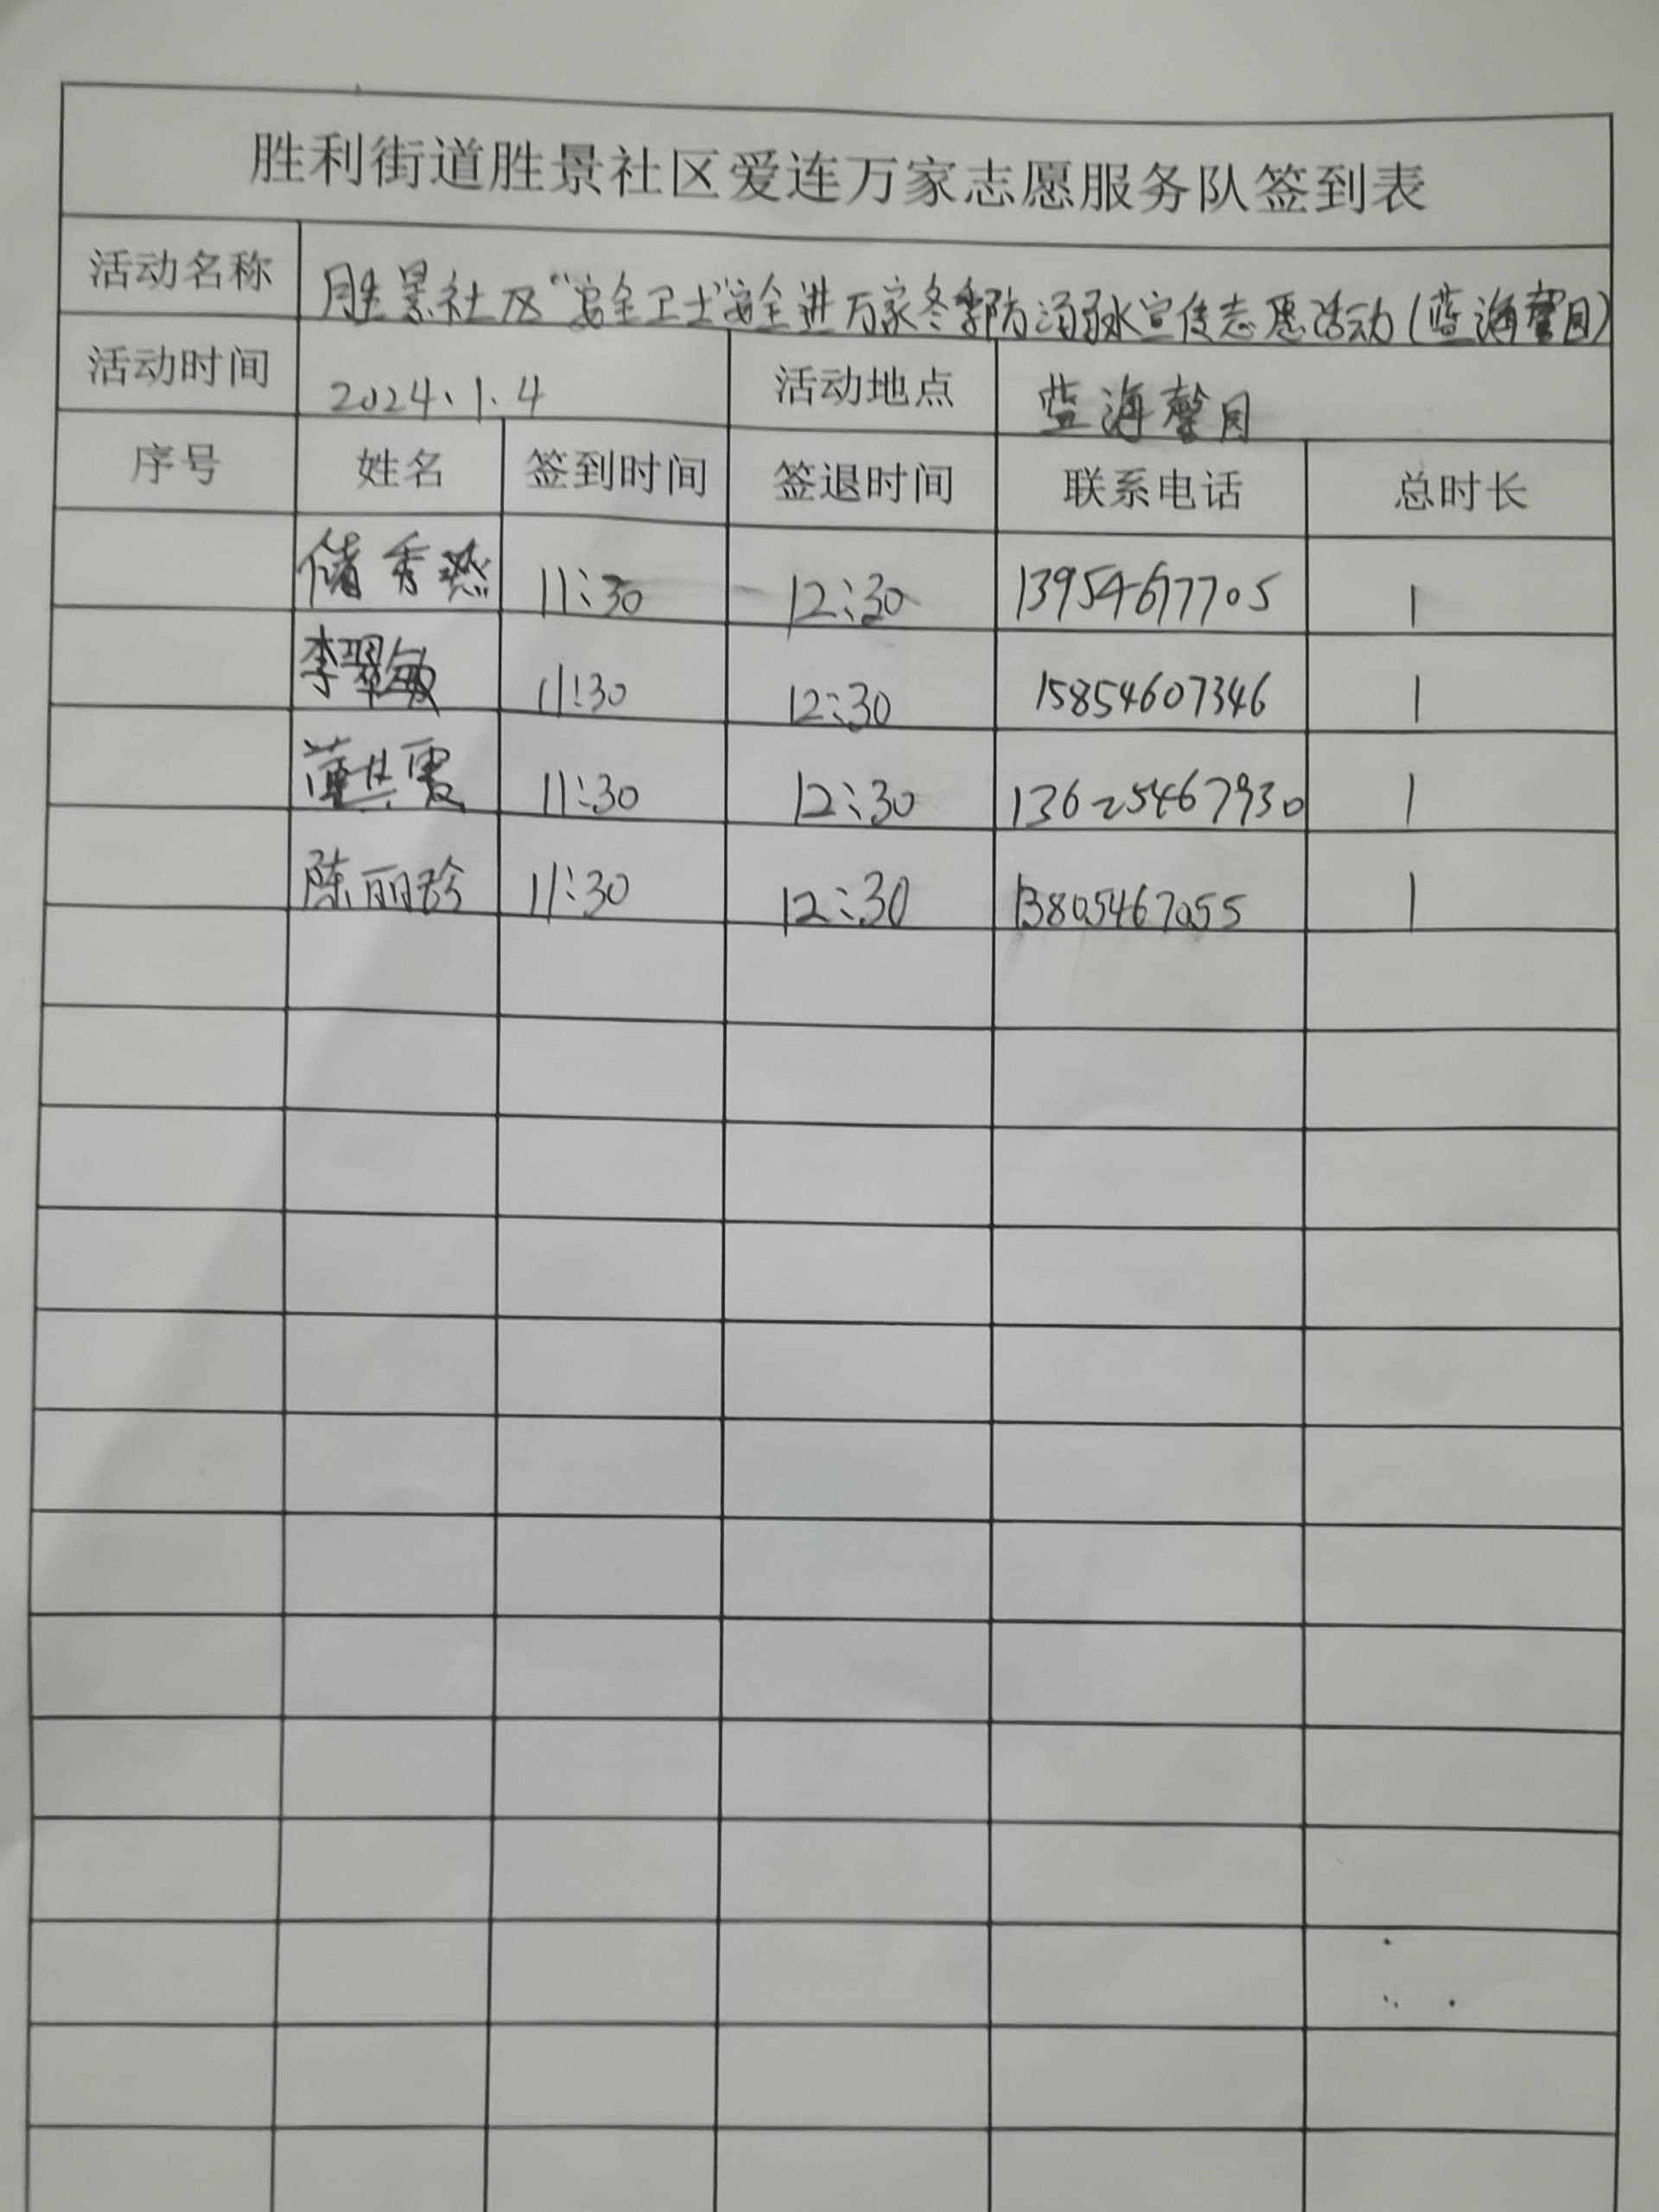 胜利街道胜景社区爱连万家志愿服务队签到表
活动名称 胜景社区“安全卫士”安全进万家冬季防溺水宣传志愿活动(蓝海馨园)
活动时间 2024.1.4 活动地点 蓝海馨园
序号 姓名 签到时间 签退时间 联系电话 总时长
储秀燕 11:30 12:30 13954677705 1
李翠敏 11:30 12:30 15854607346 1
董其霞 11:30 12:30 13625467930 1
陈丽珍 11:30 12:30 13805467055 1